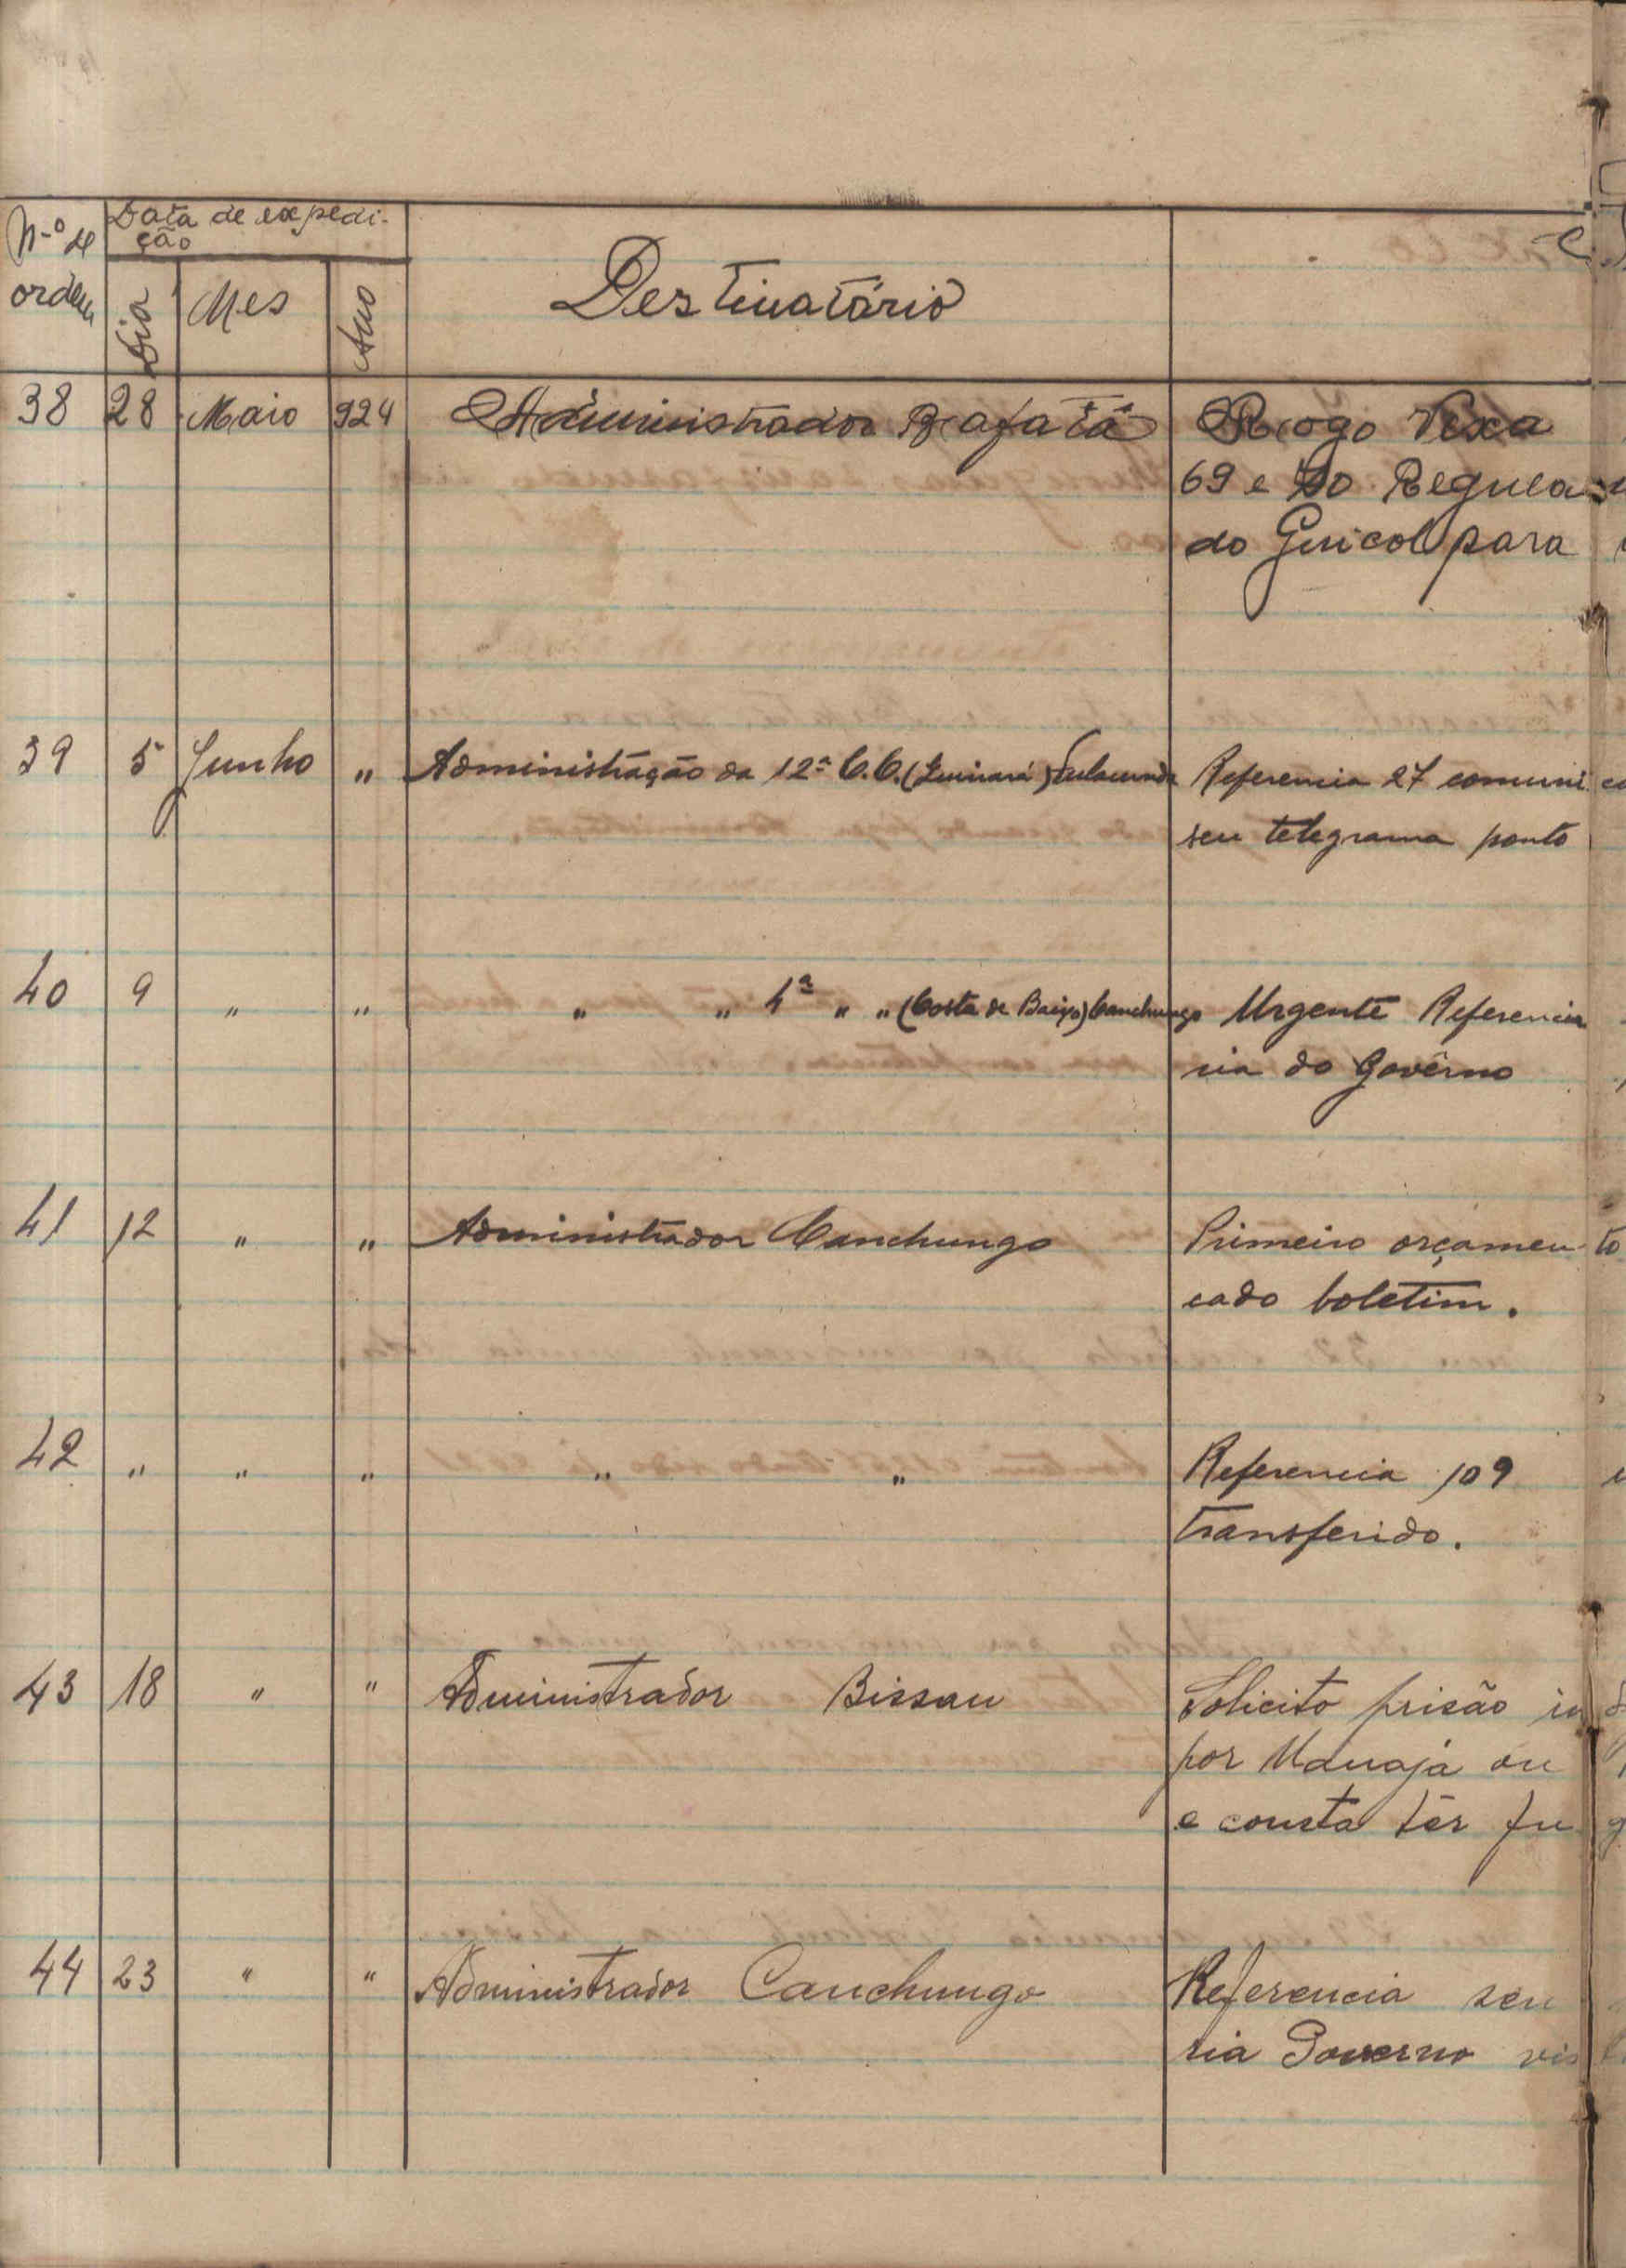 N.º de ordem
Data de expedi-
ção
Dia Mes Ano
Destinatário
38 28 Maio 924 Administrador Bafatá Rogo Vexa
69 e 70 Regula
do Guicol para
39 5 Junho " Administração da 12ª C.C. (Quinará) Fulacunda Referencia 27 comuni
seu telegrama ponto
40 9 " " " " 4ª " " (Costa de Baixo) Canchungo Urgente Referencia
ria do Govêrno
41 12 " " Administrador Canchungo Primeiro orçamen to
cado boletim.
42 " " " " " Referencia 109
transferido.
43 18 " " Administrador Bissau Solicito prisão in
por Manajá ou
e consta têr fu g
44 23 " " Administrador Canchungo Referencia seu
ria Governo vis